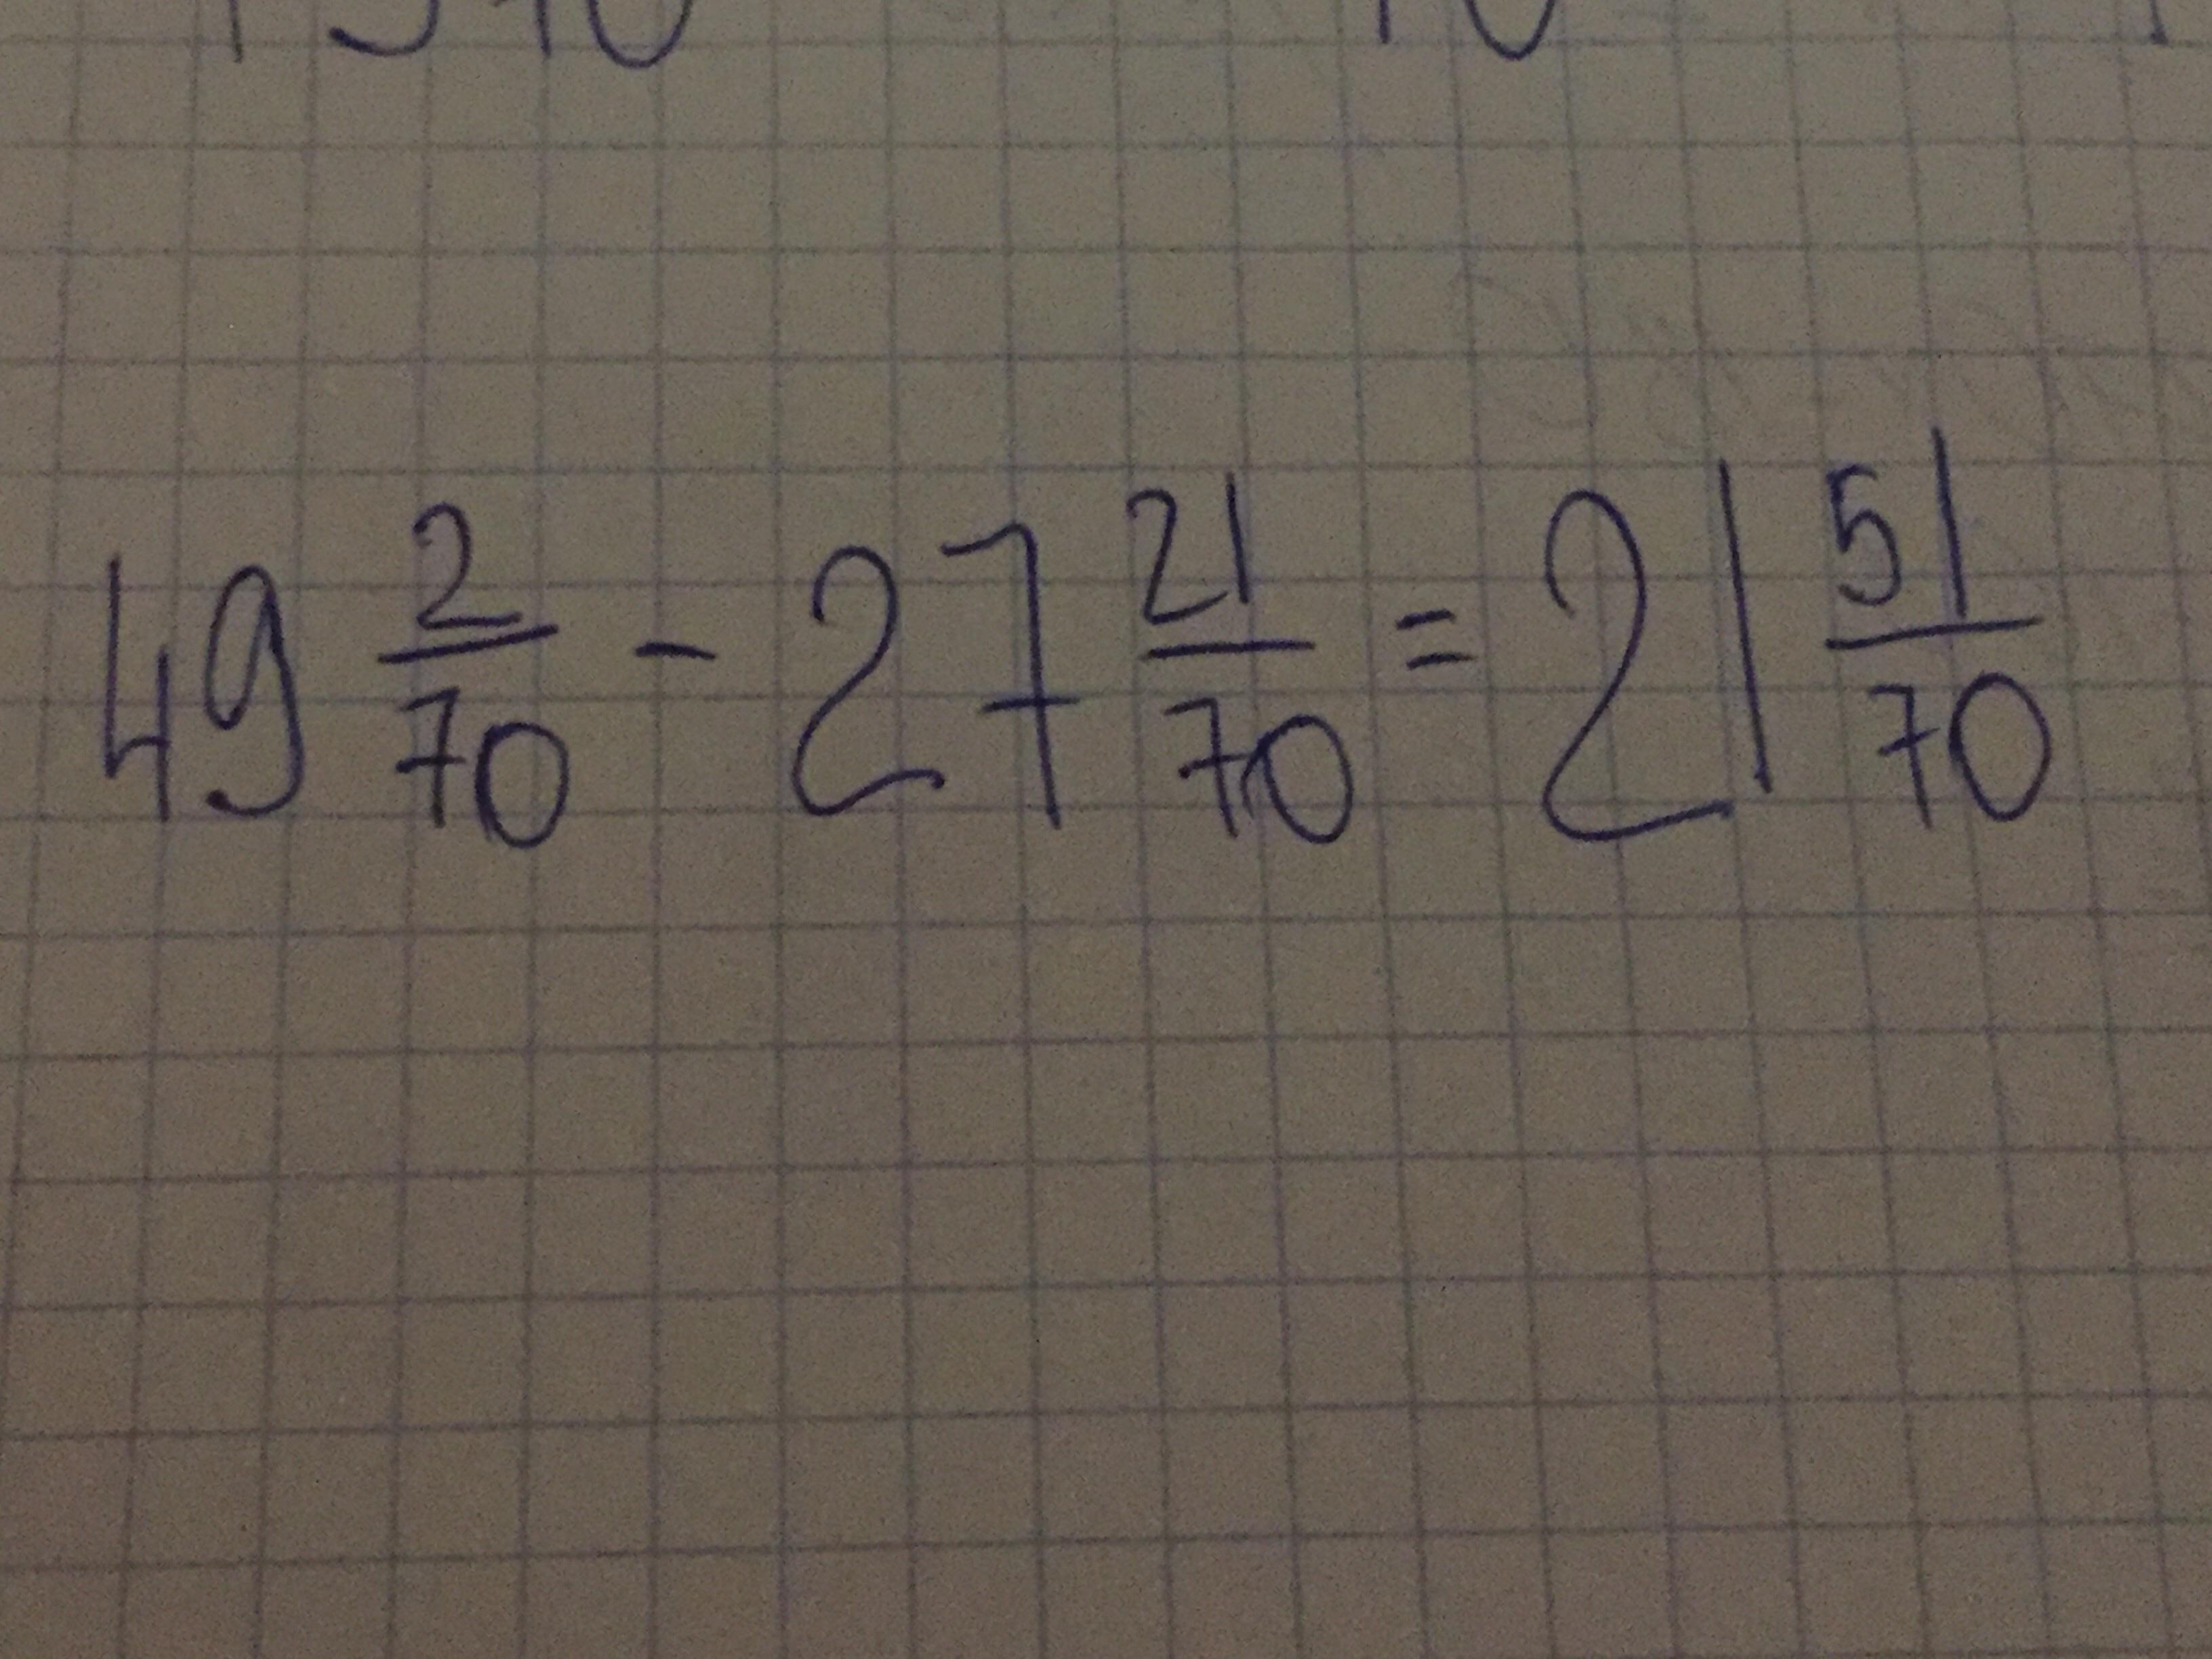 49 2/70 - 27 21/70 = 21 51/70